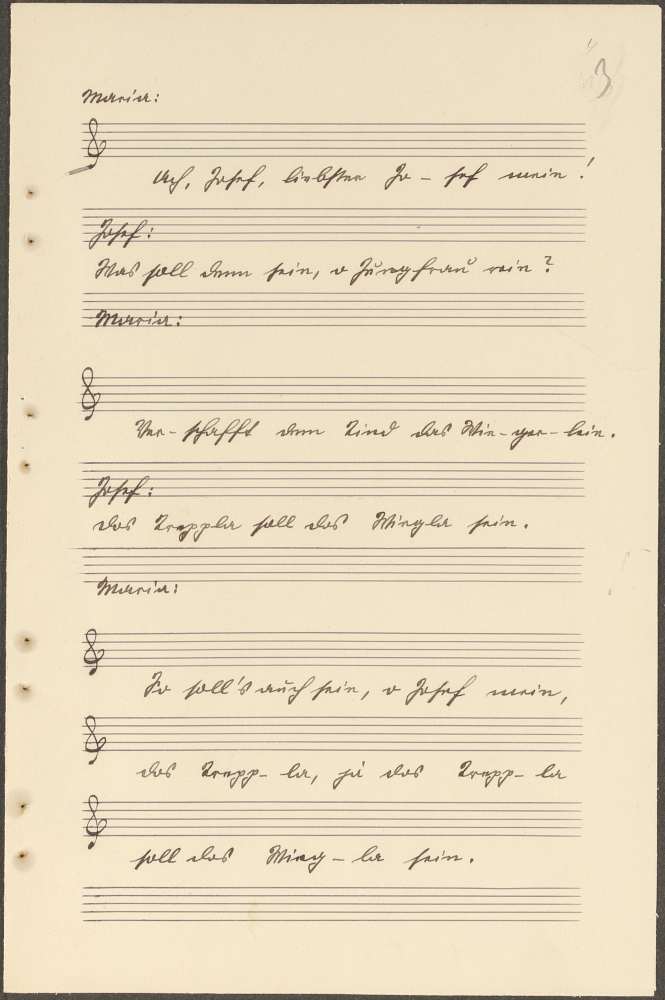 3
Maria:
Ach, Josef, liebster Jo - sef mein!
Josef:
Was soll denn sein, o Jungfrau rein?
Maria:
Ver- schafft dem Kind das Wie-ger-lein.
Josef:
das Kreppla soll das Wiegla sein.
Maria:
So soll's auch sein, o Josef mein,
das Krepp- la, ja das Krepp- la
soll das Wieg - la sein.